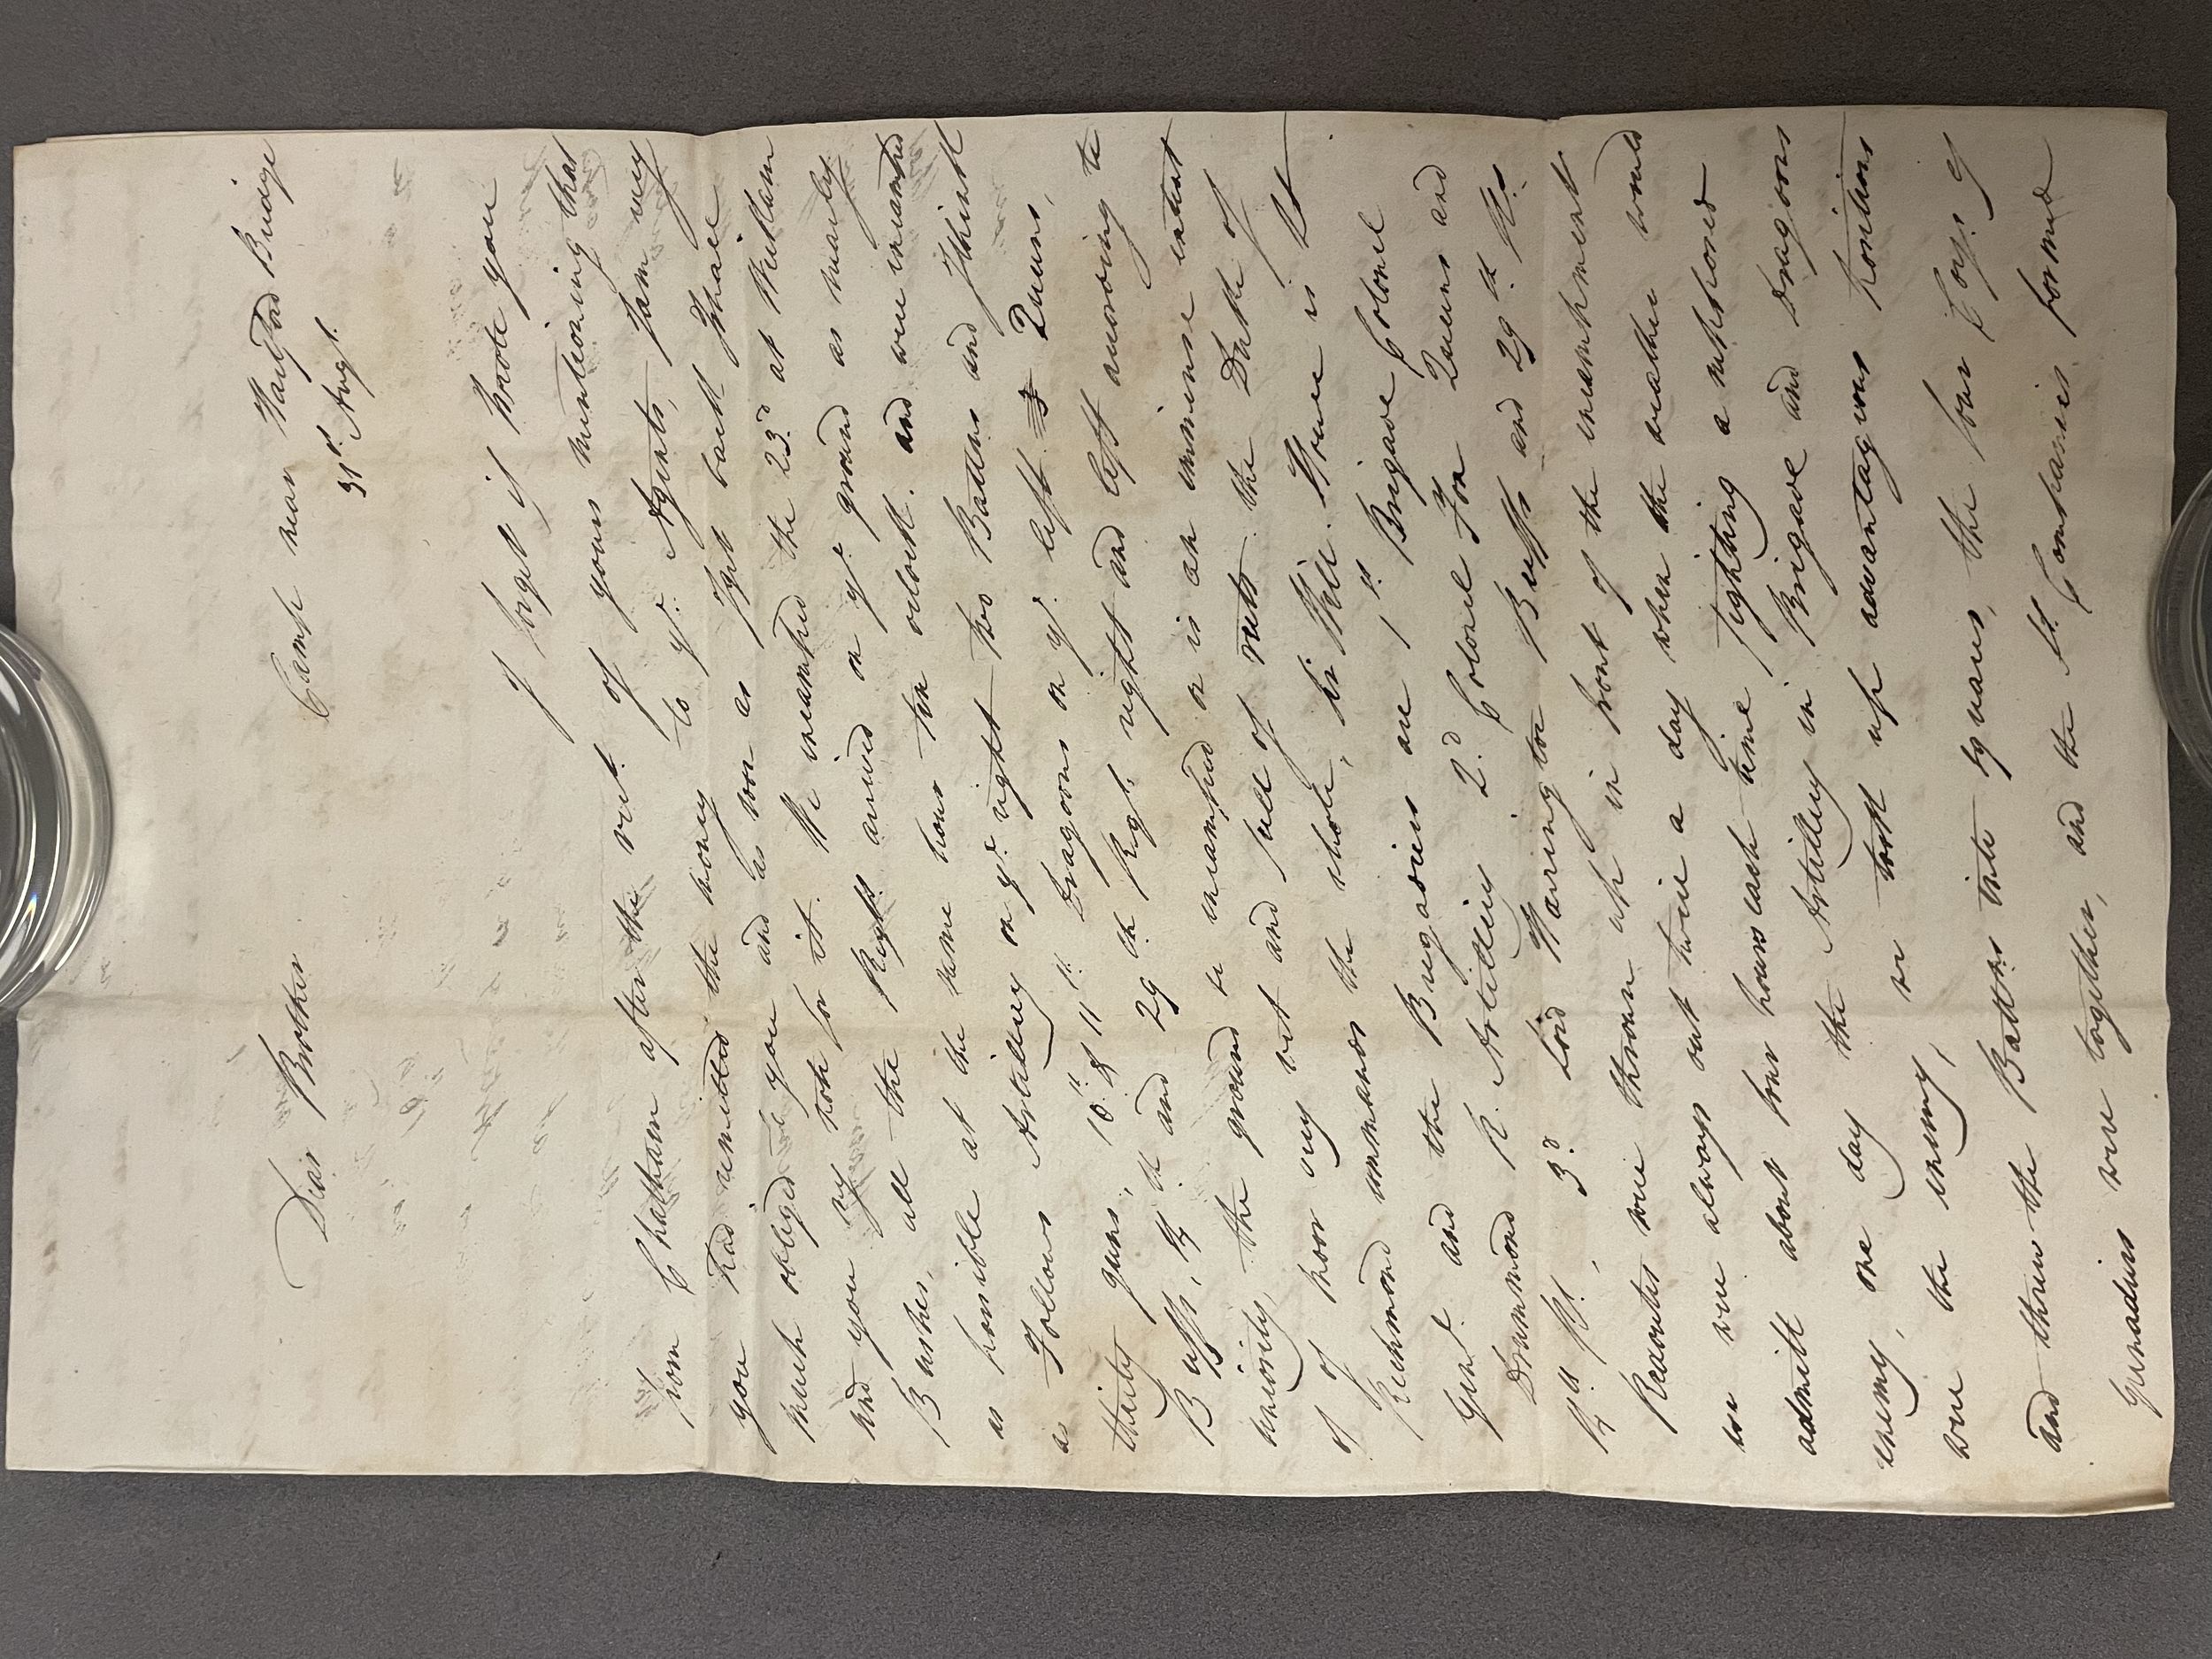 Camp near Hartford Bridge
Dear Brother 31st Augt.
I forget if I wrote you
from Chatham after the rect. of yours mentioning that
you had remitted the money to yr. Agents, I am very
much obliged to you and as soon as I get back I shall
send you my note for it. We encamped the 23d at Wickham
Bushes, all the Regts. arrived on yr. ground as nearly
as possible at the same hour ten oclock. and were encamped
as Follows Artillery on yr. right two Battns and I think
thirty guns, 10th & 11th Dragoons on yr. left Queens,
Buffs, 14th and 29th Regt. right and left according to
seniority, the ground we encamped on is an immense extent
of poor very wet and full of ruts. the Duke of
Richmond commands the whole, Sir Will. Howe is Lt
Genl. and the Brigadiers are 1st Brigade Colonel
Drummond R. Artillery 2d Colonel Fox Queens and
14th Rt., 3d Lord Harrington Buffs and 29th Rt.
Redouts were thrown up in front of the encampment
we were always out twice a day when the weather would
admitt about four hours each time fighting a supposed
enemy, one day the Artillery in Brigade and Dragoons
were the enemy, we took up advantagious positions
and threw the Battns into squares, the four Coys. of
Granadiers were together, and the Lt. Companies formed